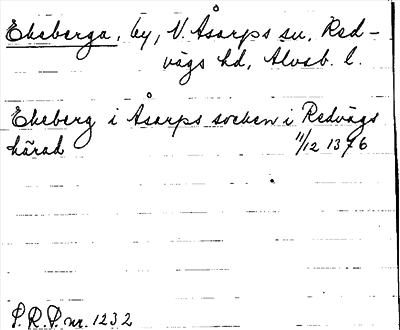 Ekeberga, by, N. Åsarps sn, Red-
vägs hd, Älvsb. l.
Ekeberg i Åsarps socken i Redvägs
härad 11/12 1376
S.R.P. nr. 1232